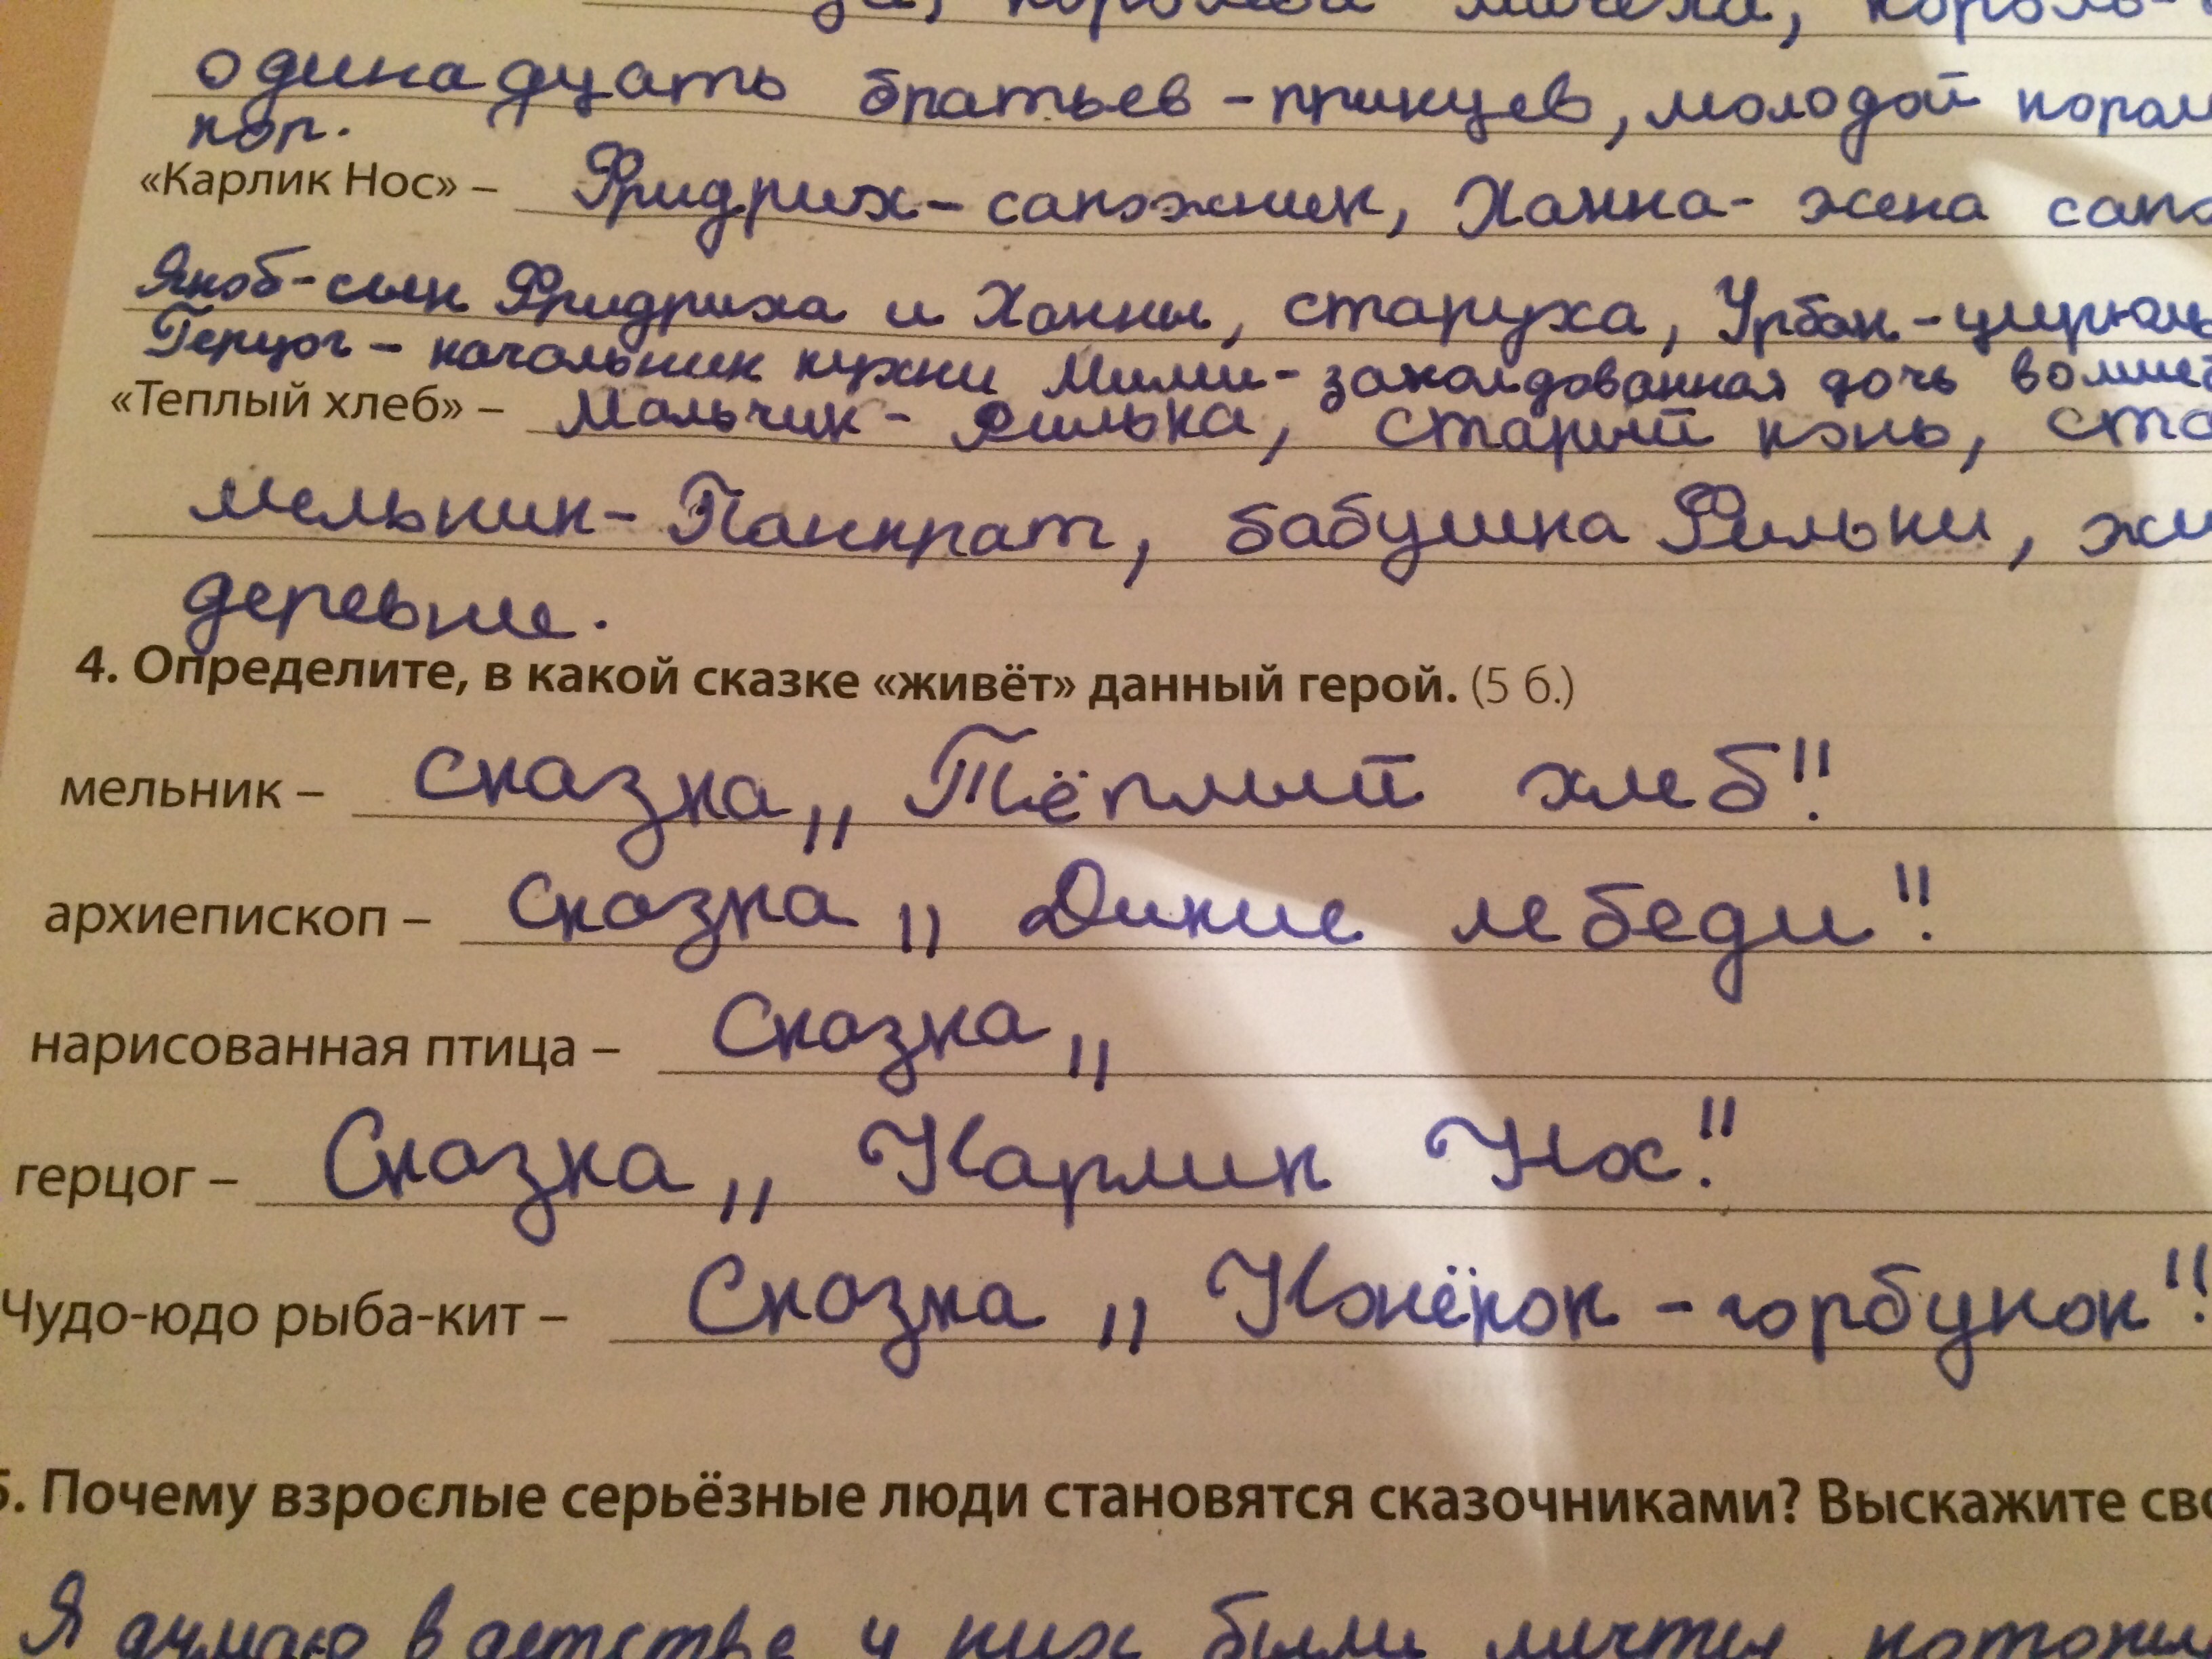 королева мачеха, король-
одинадцать братьев-принцев, молодой
кор.
«Карлик Нос» – Фридрих-сапожник, Ханна- жена
Якоб-сын Фридриха и Ханны, старуха, Урбан-
Герцог - начальник кухни Мими- заколдованная дочь
«Теплый хлеб» – Мальчик- Филька, старый конь,
мельник- Панкрат, бабушка Фильки,
деревне.
4. Определите, в какой сказке «живёт» данный герой. (5 б.)
мельник – сказка „ Тёплый хлеб".
архиепископ – Сказка „ Дикие лебеди".
нарисованная птица – Сказка „
герцог – Сказка „ Карлик Нос".
Чудо-юдо рыба-кит – Сказка „ Конёкок-горбунок".
5. Почему взрослые серьёзные люди становятся сказочниками? Выскажите
Я думаю в детстве у них были мечты